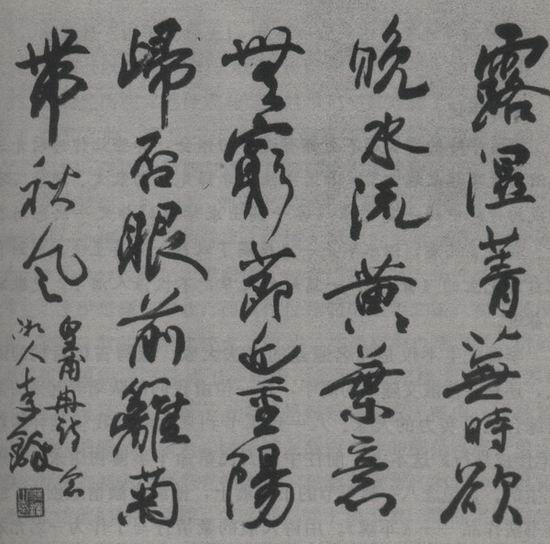 露濕菁蕪時欲
晚水流黃葉意
無窮節近重陽
歸否眼前籬菊
帶秋風
皇甫冉詩
湘人李鐸